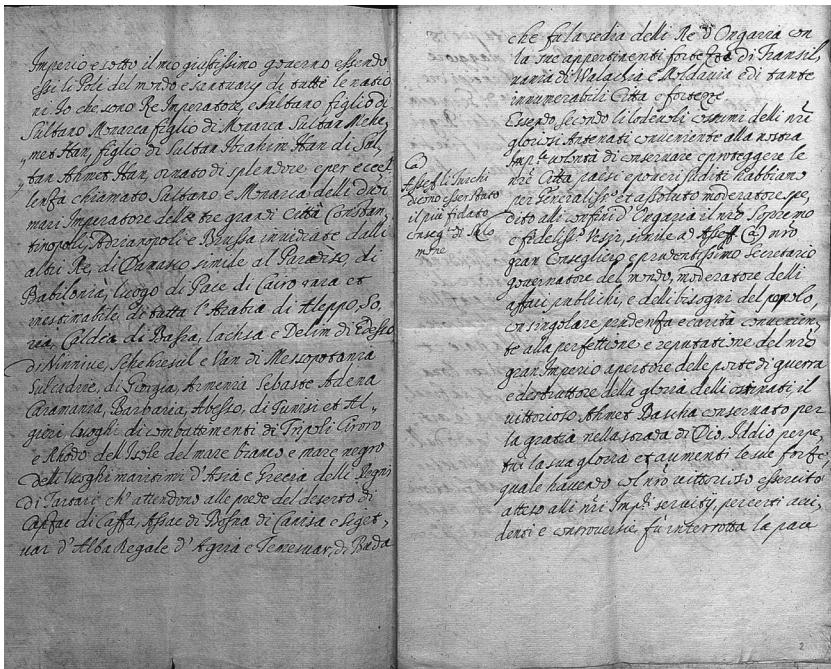 Imperio e sotto il mio giustissimo governo essendo
essi li Poli del mondo e santuarij di tutte le natio
ni. Io che sono Re Imperatore, e sultano figlio di
Sultano Monarca figlio di Monarca Sultan Mehe,
met Han, figlio di Sultan Ibrahim Han di Sul,
tan Ahmet Han, ornato di splendore e per eccel
lenza chiamato Sultano e Monarca delli Dui
mari Imperatore delle tre grandi Città Constan
tinopoli, Adrianopoli e Brussa invidiate dalli
altri Re, di Damasco simile al Paradiso, di
Babilonia, luogo di Pace di Cairo rara et
inestimabile di tutta l'Arabia di Aleppo, So,
ria, Caldea di Basra, Lachsa e Delim di Edesso
di Ninnive, Schehresul e Van di Messopotania
Sulcadrie, di Giorgia, Armenia Sebaste Adena
Caramania, Barbaria, Abesso, di Tunisi et Al,,
gieri, luoghi di combattimenti di Tripoli
e Rhodo del Isole del mare bianco e mare negro
delli luoghi maritimi d'Asia e Grecia delli Regni
di Tartari ch'attendono alle pede del deserto di
Capfac di Caffa, Assac di Bosna di Canisa e Seget,
uar d'Alba Regale d'Agria e Temesuar, di Buda
che fu la sedia delli Re d'Ongaria con
la sue appertinenti fortezze di Transil,
uania di Walachia e Moldauia e di tante
innumerabili Città e fortezze.
Essendo secondo li lodeuoli costumi delli nri
gloriosi Antenati conueniente alla nostra
Imple. volontà di conseruare e proteggere le
nre Città paesi e poueri sudditi habbiamo
per Generalissmo. et assoluto moderatore spe,
dito alli confini d'Ongaria il nro Sopremo
e fedeliss. Vesir, simile ad Asseff (a) nro
gran Conseglier e prudentissimo Secretario
gouernatore del mondo, moderatore delli
affari publichi, e delli bisogni del popolo,
con singolare prudenza e carità conuenien,
te alla perfettione e reputatione del nro
gran Imperio apertore delle porte di guerra
e destruttore della gloria delli ostinati, il
vittorioso Ahmet Bascha conseruato per
la gratia nella strada di Dio. Iddio perpe,
tui la sua gloria et aumenti le sue forze,
quale hauendo col nro vittorioso essercito
atteso alli nri Impli. seruitij, per certi acci,
denti e controuersie fù interrotta la pace
(a)
Asseff li Turchi
dicono esser stato
il più fidato
Consegre. di Salo
mone
2